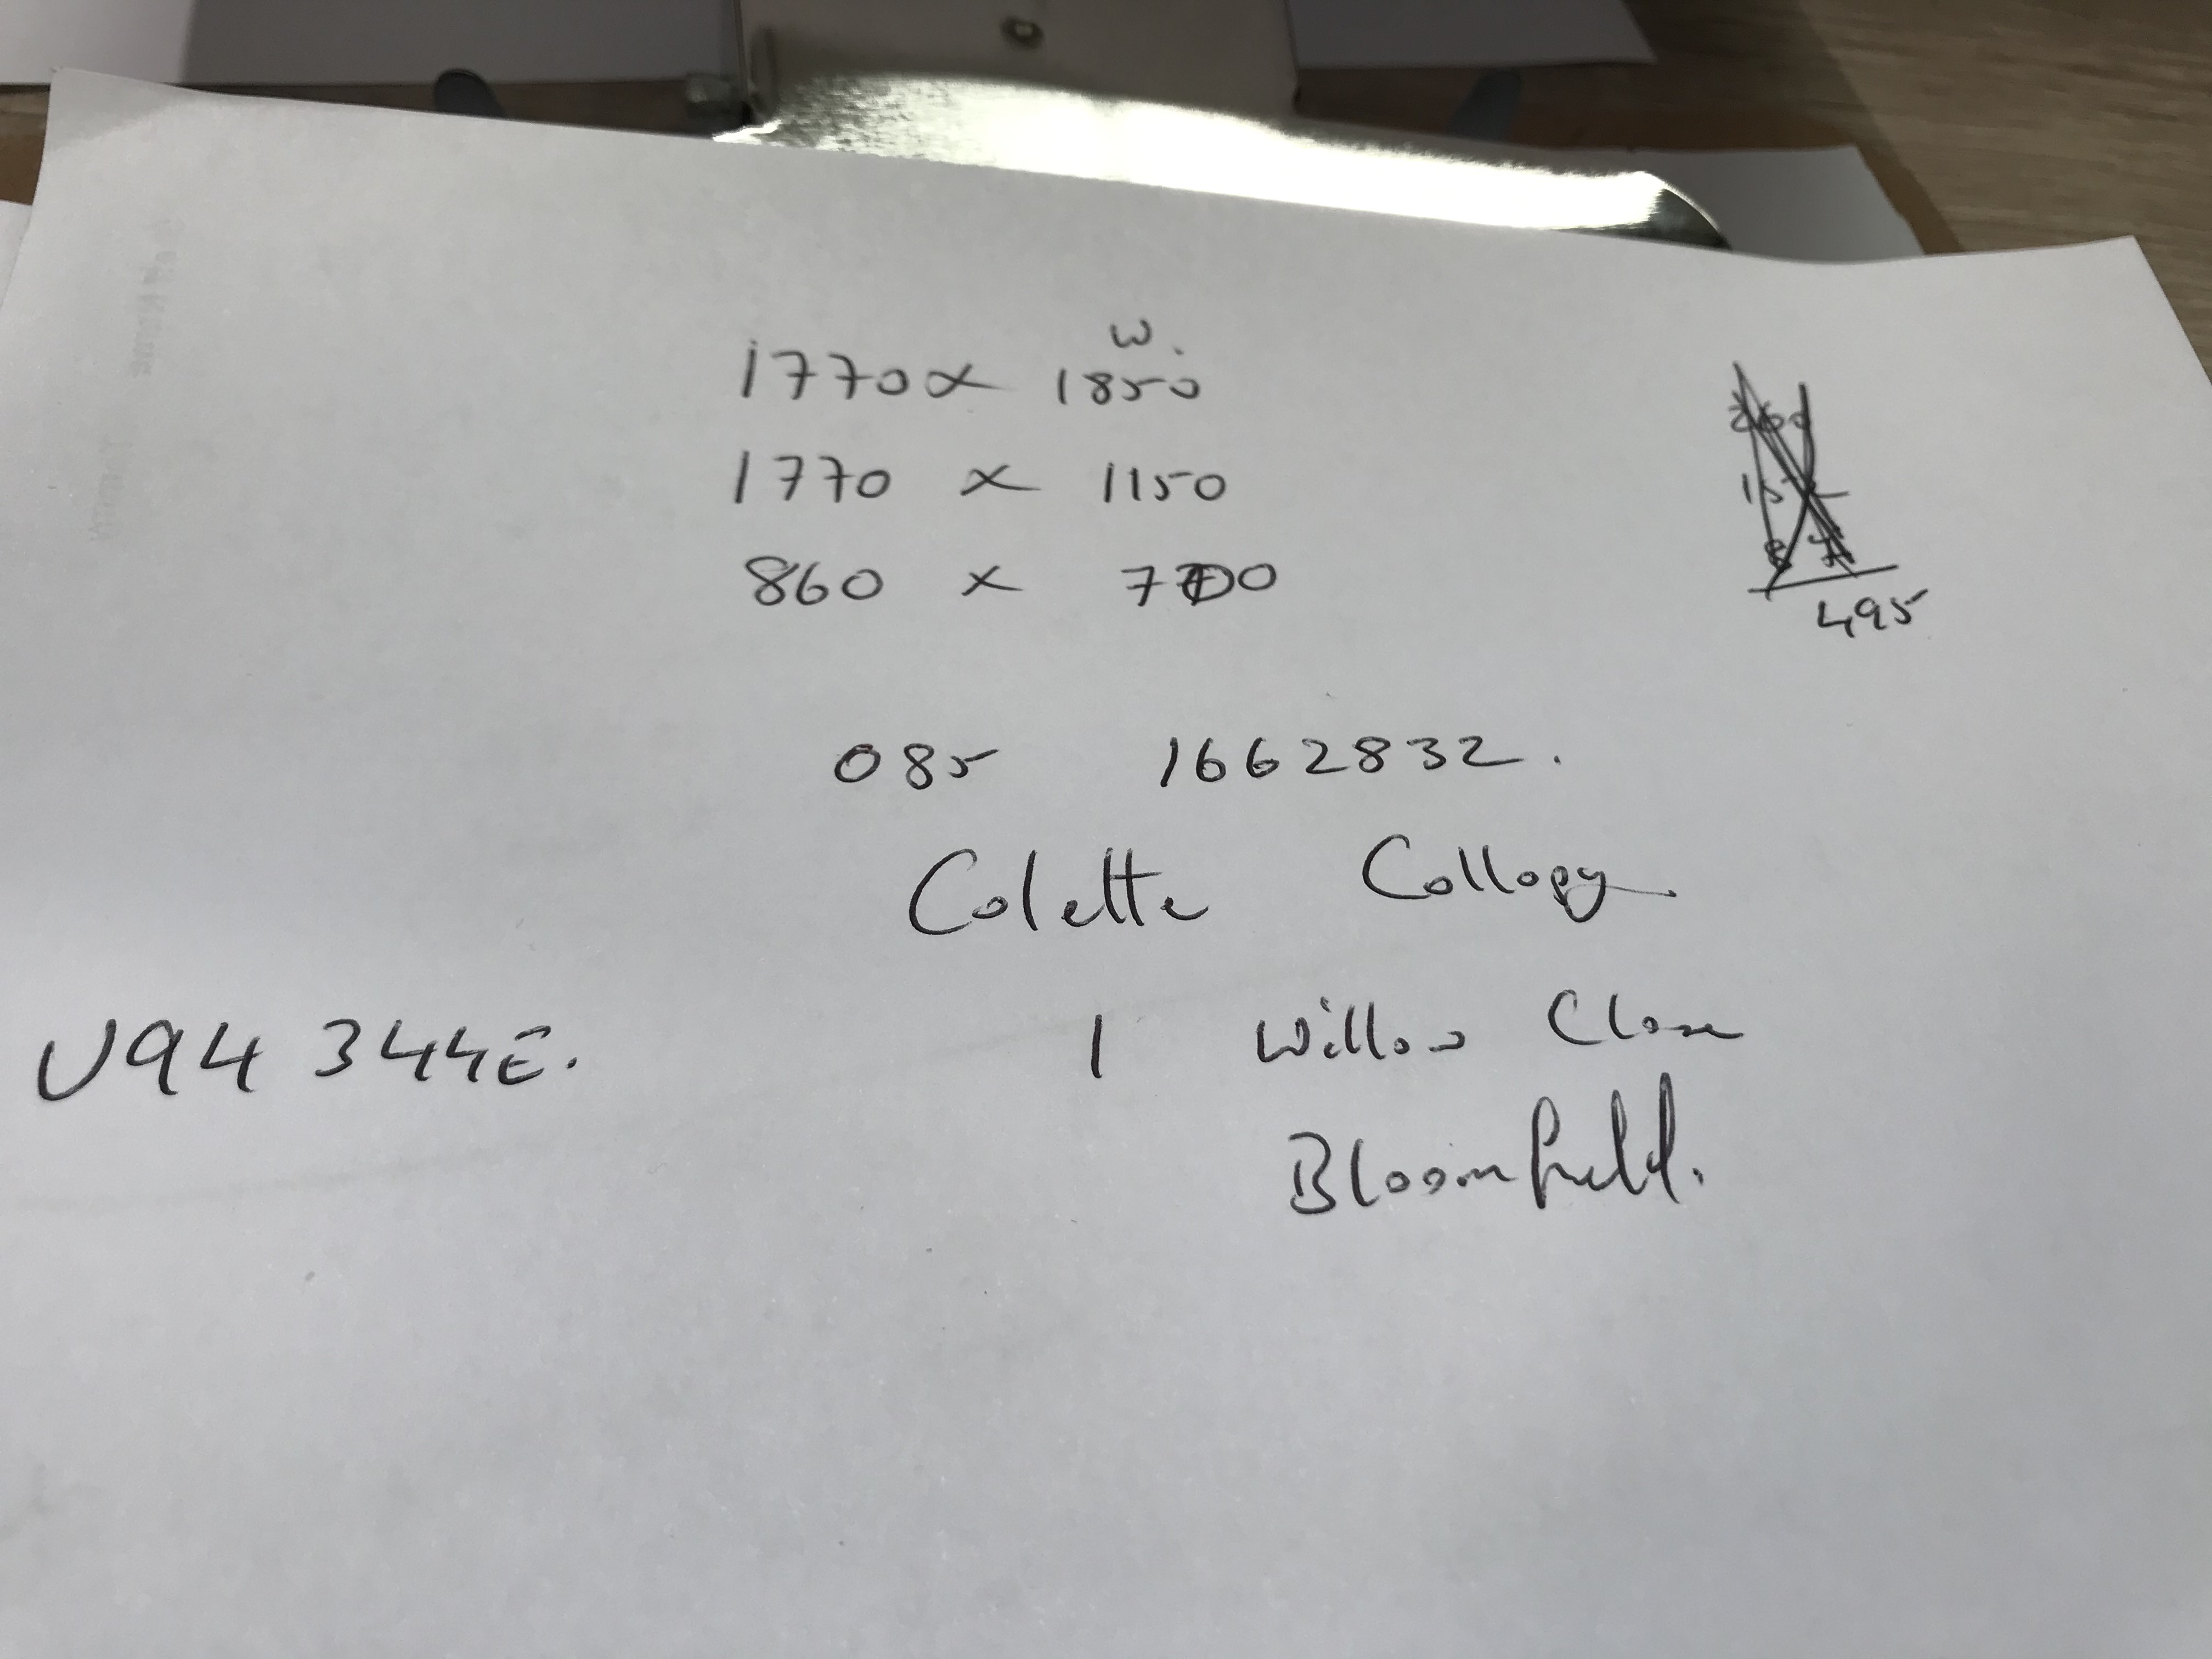 W.
1770 x 1850
1770 x 1150
860 x 7700
495
085 1662832.
Colette Collopy.
V94 344E.
1 Willow Close
Bloomfield.